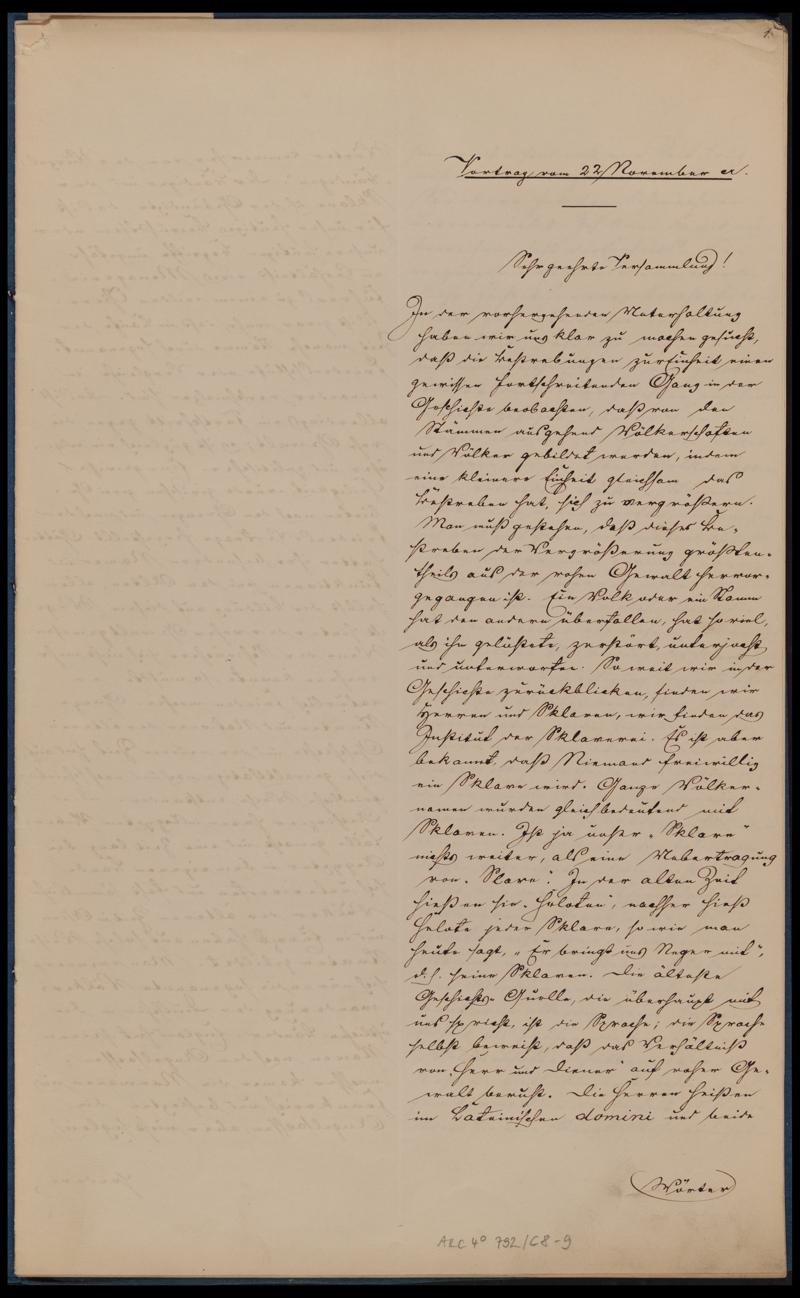 1.
Vortrag vom 22 November cr.
Sehr geehrte Versammlung!
In der vorhergehenden Unterhaltung
haben wir uns klar zu machen gesucht,
daß die Bestrebungen zur Einheit einen
gewissen fortschreitenden Gang in der
Geschichte beobachten, daß von den
Stämmen ausgehend Völkerschaften
und Völker gebildet werden, indem
eine kleinere Einheit gleichsam das
Bestreben hat, sich zu vergrößern.
Man muß gestehen, daß dieses Be-
streben der Vergrößerung größten-
theils aus der rohen Gewalt hervor-
gegangen ist. Ein Volk oder ein Stamm
hat den andern überfallen, hat so viel,
als ihn gelüstete, zerstört, unterjocht
und unterworfen. So weit wir in der
Geschichte zurückblicken, finden wir
Herren und Sklaven, wir finden das
Institut der Sklaverei. Es ist aber
bekannt, daß Niemand freiwillig
ein Sklave wird. Ganze Völker-
namen wurden gleichbedeutend mit
Sklaven. Ist ja unser „Sklave“
nichts weiter, als eine Uebertragung
von „Slave“. In der alten Zeit
hießen sie „Heloten“, nachher hieß
Helote jeder Sklave, so wie man
heute sagt, „Er bringt uns Neger mit“,
d.h. seine Sklaven. Die älteste
Geschichts-Quelle, die überhaupt mit
uns spricht, ist die Sprache; die Sprache
selbst beweist, daß das Verhältniß
von „Herr und Diener“ auf roher Ge-
walt beruht. Die Herren heißen
im Lateinischen domini und beide
Wörter
ARC 4° 792/C8-9